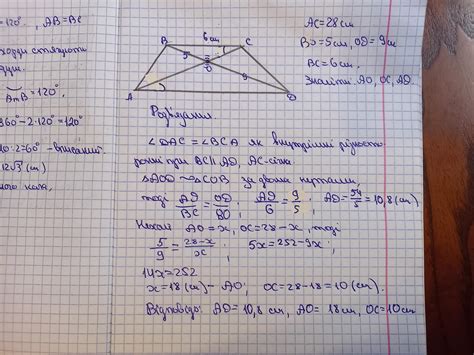 =120°, AB = BC
хорди стягують
дуги.
AmB = 120°,
360° - 2·120° = 120°
:2 = 60° - вписаний
12√3 (см)
ного кола,
6 см
B
C
5
O
9
A
D
AC = 28 см
BO = 5 см, OD = 9 см
BC = 6 см.
Знайти: AO, OC, AD.
Розв'язання.
∠DAC = ∠BCA як внутрішні різносто-
ронні при BC ∥ AD, AC - січна.
△AOD ~ △COB за двома кутами,
тоді AD/BC = OD/BO; AD/6 = 9/5; AD = 54/5 = 10,8 (см).
Нехай AO = x, OC = 28 - x, тоді
5/9 = 28-x/x; 5x = 252 - 9x;
14x = 252
x = 18 (см) - AO; OC = 28 - 18 = 10 (см).
Відповідь: AD = 10,8 см, AO = 18 см, OC = 10 см